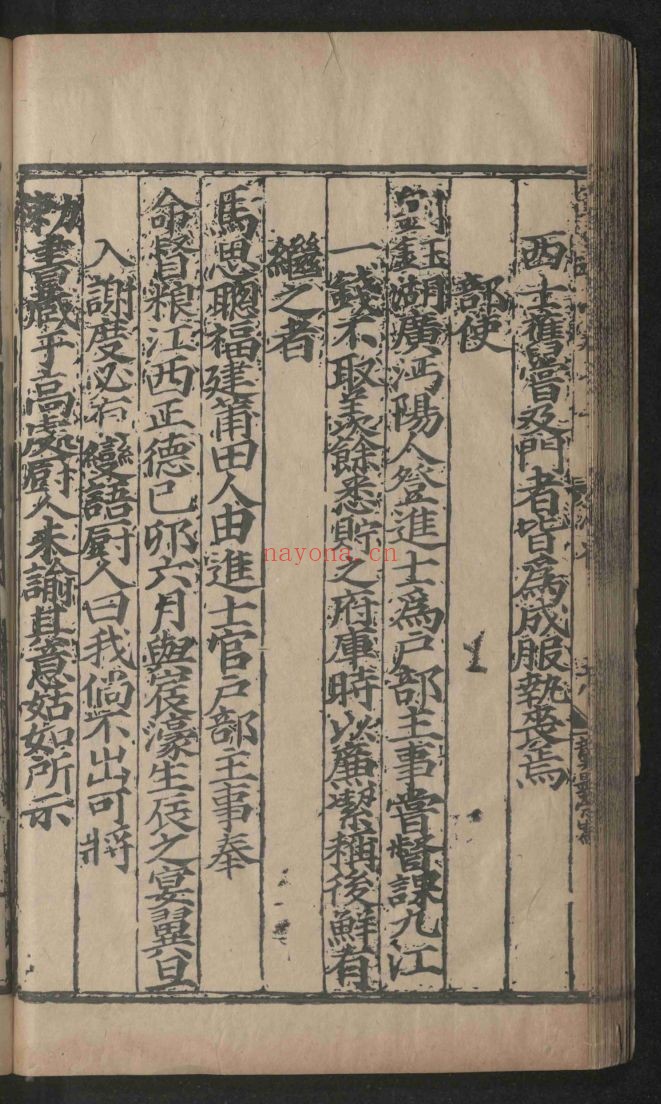 西士舊嘗及門者皆爲成服執喪焉
部使
劉鈺湖廣沔陽人登進士爲戶部主事嘗督課九江
一錢不取羡餘悉貯之府庫時以廉潔稱後鮮有
繼之者
馬思聰福建莆田人由進士官戶部主事奉
命督粮江西正德己卯六月與宸濠生辰之宴翼旦
入謝度必有變語厨人曰我倘不出可將
勑書藏乎高處厨人未諭其意姑如所示
nayona.cn